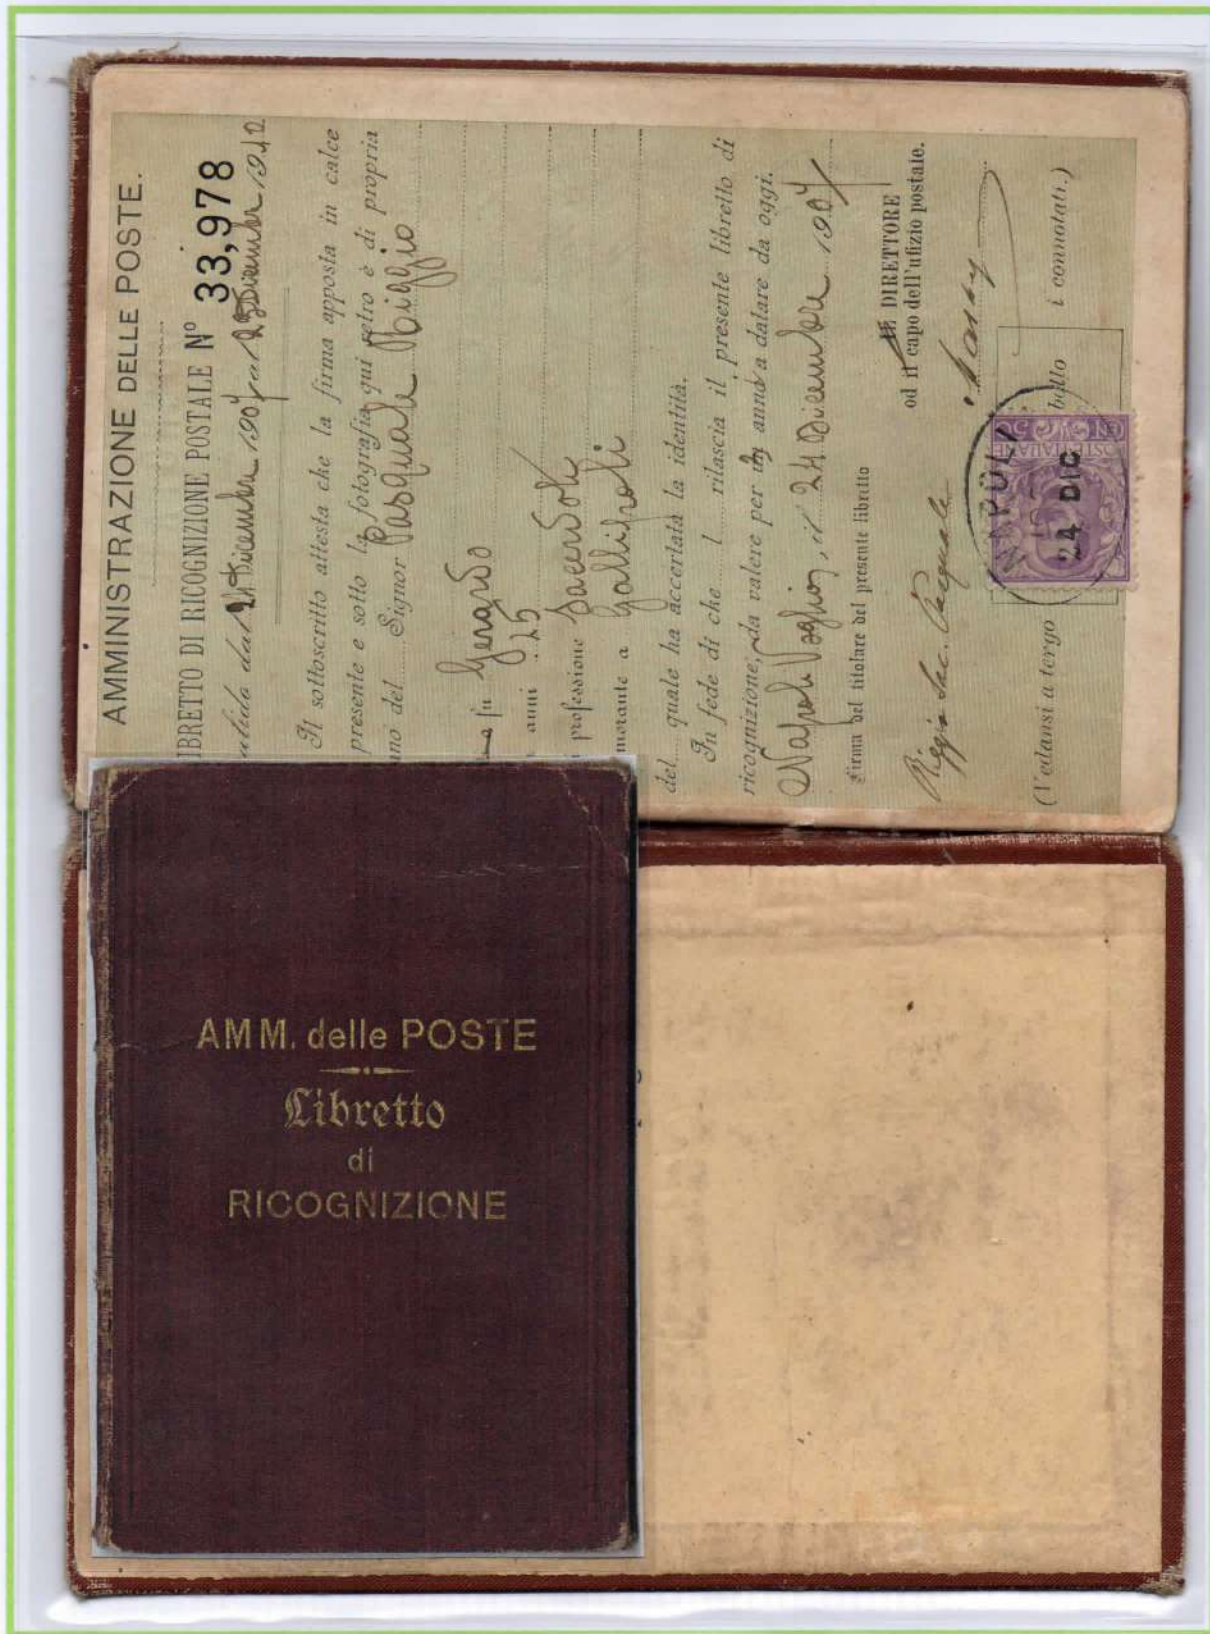 AMMINISTRAZIONE DELLE POSTE.
IBRETTO DI RICOGNIZIONE POSTALE N° 33,978
alida dal 24 Dicembre 1907 al 23 Dicembre 1910
Il sottoscritto attesta che la firma apposta in calce
presente e sotto la fotografia qui retro è di propria
ano del Signor Pasquale Riggio
fu Gerardo
anni 25
professione Sacerdote
morante a Gallipoli
del quale ha accertata la identità.
In fede di che l rilascia il presente libretto di
ricognizione, da valere per un anno a datare da oggi.
Napoli Vaglia, il 24 Dicembre 1907
Firma del titolare del presente libretto
IL DIRETTORE
od il capo dell'ufizio postale.
Riggio Sac. Pasquale
NAPOLI
24 DIC
POSTE ITALIANE
bollo
(Vedansi a tergo i connotati.)
AMM. delle POSTE
Libretto
di
RICOGNIZIONE